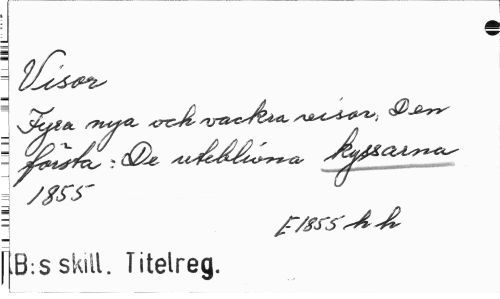 Visor
Fyra nya och vackra visor, Den
första: De uteblivna kyssarna
1855
E 1855 h h
KB:s skill. Titelreg.